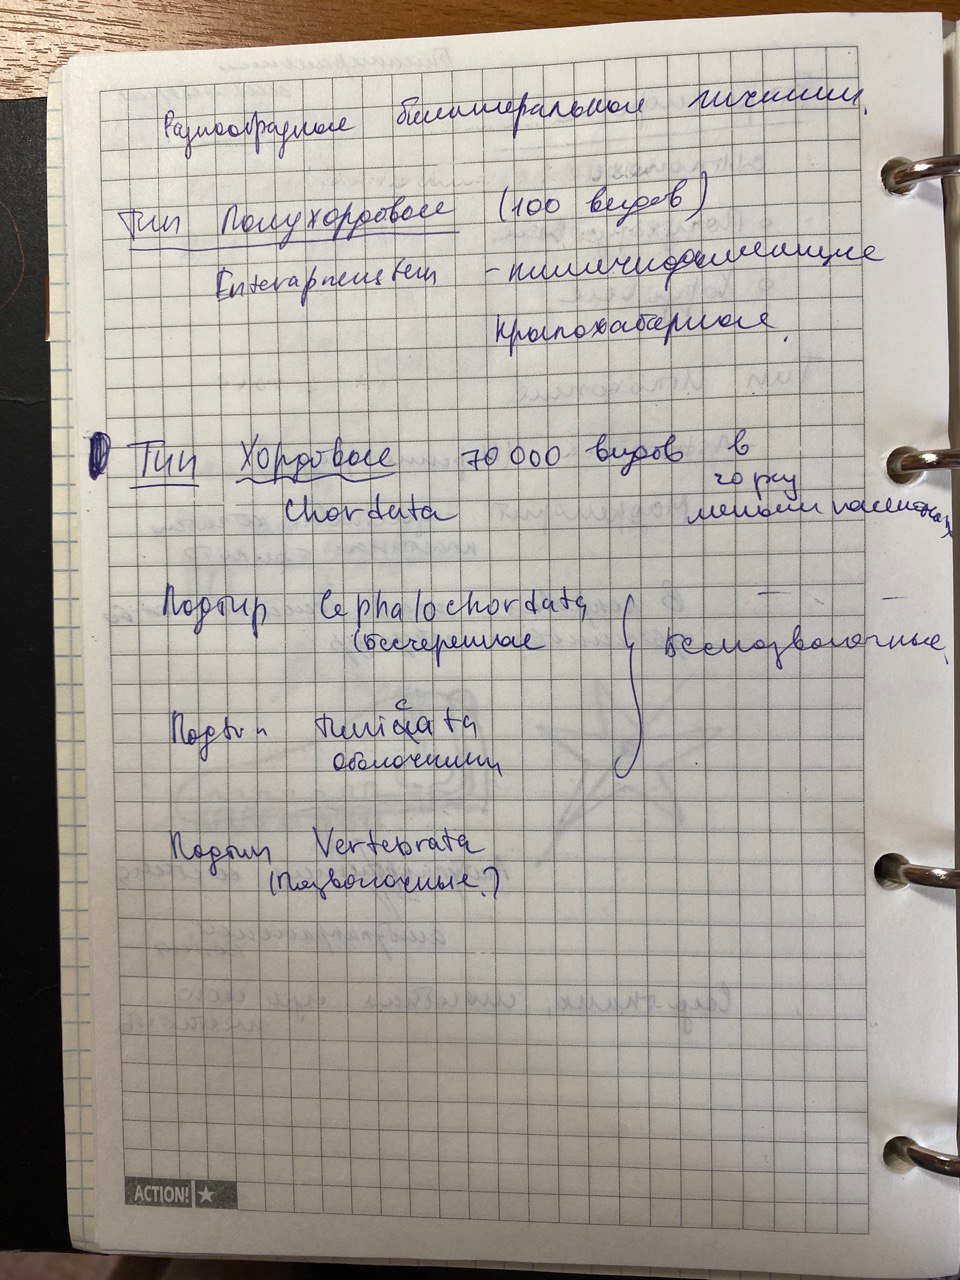 Разнообразные билатеральные личинки.
Тип Полухордовые (100 видов)
– кишечнодышащие
крыложаберные.
Тип Хордовые 70 000 видов в
Chordata
Подтип Cephalochordata
(Бесчерепные
Беспозвоночные.
Подтип Tunicata
оболочники
Подтип Vertebrata
(Позвоночные?)
ACTION!